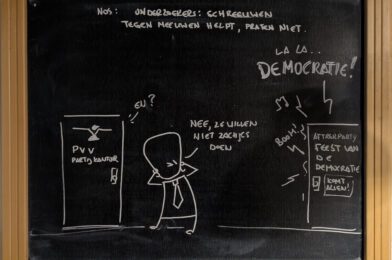 NOS: ONDERZOEKERS: SCHREEUWEN
TEGEN MEEUWEN HELPT, PRATEN NIET.
LA LA...
DEMOCRATIE!
EN?
NEE, ZE WILLEN
NIET ZACHTJES
DOEN
BOOM!
PVV
PARTIJKANTOOR
AFTERPARTY
FEEST VAN
DE
DEMOCRATIE
KOMT
ALLEN!